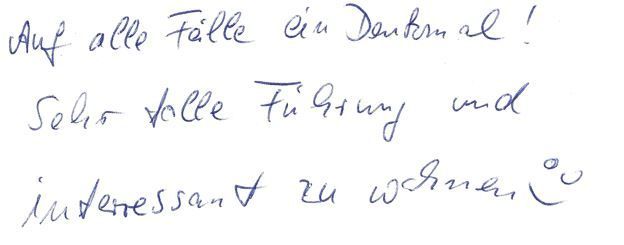 Auf alle Fälle ein Denkmal!
Sehr tolle Führung und
interressant zu wohnen